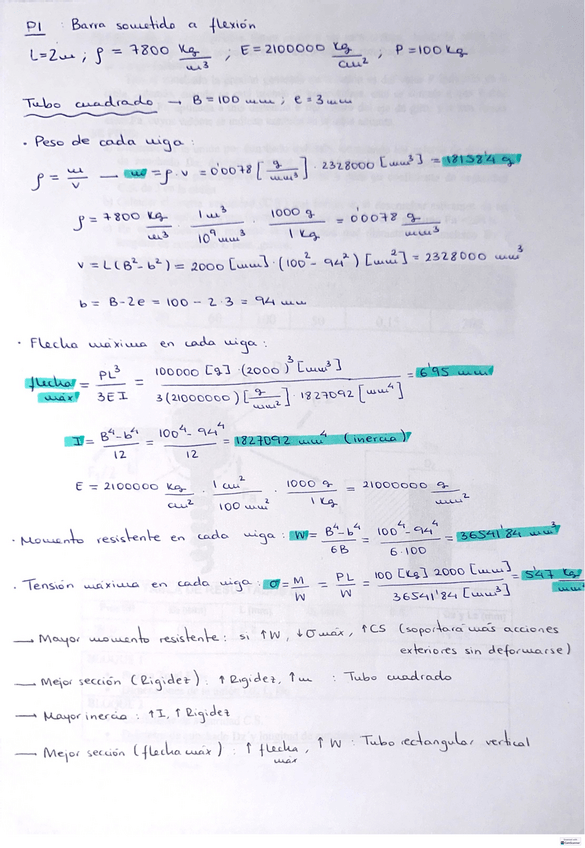 P1 : Barra sometido a flexión
L=2m ; ρ = 7800 Kg/m³ ; E=2100000 Kg/cm² ; P=100 Kg
Tubo cuadrado → B=100 mm ; e=3mm
· Peso de cada viga :
ρ = m/v → m = ρ · v = 0'0078 [g/mm³] · 2328000 [mm³] = 18158'4 g
ρ = 7800 Kg/m³ · 1 m³/10⁹ mm³ · 1000 g/1 Kg = 0'0078 g/mm³
v = L(B²-b²) = 2000 [mm] · (100² - 94²) [mm²] = 2328000 mm³
b = B-2e = 100 - 2·3 = 94 mm
· Flecha máxima en cada viga :
flecha máx = PL³/3EI = 100000 [g] · (2000)³ [mm³] / 3(21000000) [g/mm²] · 1827092 [mm⁴] = 6'95 mm
I = B⁴-b⁴/12 = 100⁴-94⁴/12 = 1827092 mm⁴ (inercia)
E = 2100000 Kg/cm² · 1 cm²/100 mm² · 1000 g/1 Kg = 21000000 g/mm²
· Momento resistente en cada viga : W = B⁴-b⁴/6B = 100⁴-94⁴/6·100 = 36541'84 mm³
· Tensión máxima en cada viga : σ = M/W = PL/W = 100 [Kg] 2000 [mm] / 36541'84 [mm³] = 5'47 Kg/mm²
→ Mayor momento resistente : si ↑W, ↓σ máx, ↑CS (soportará más acciones
exteriores sin deformarse)
— Mejor sección (Rigidez) : ↑ Rigidez, ↑ m : Tubo cuadrado
— Mayor inercia : ↑I, ↑Rigidez
— Mejor sección (flecha máx) : ↑ flecha máx, ↑ W : Tubo rectangular vertical